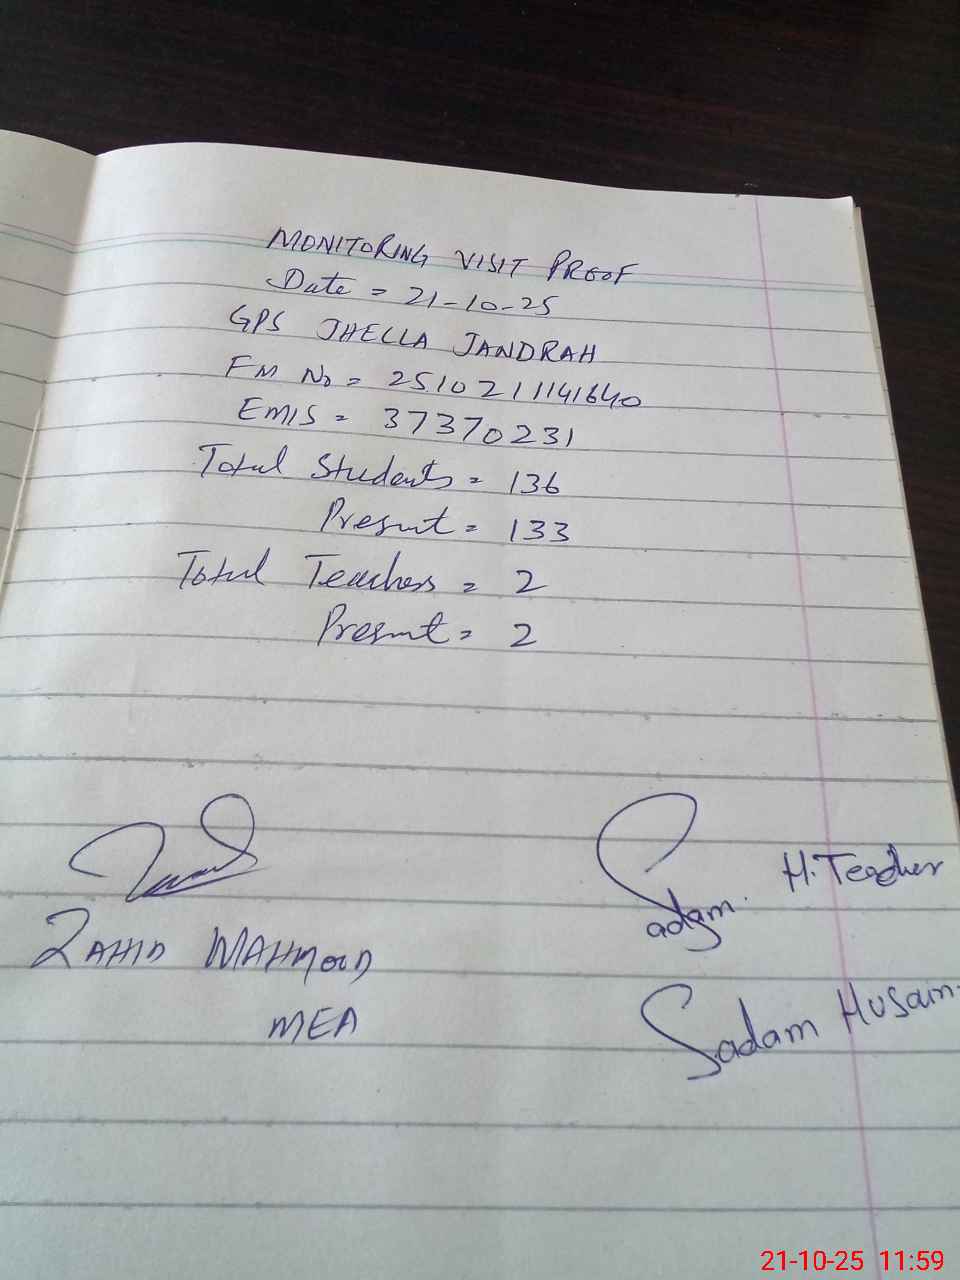 MONITORING VISIT PROOF
Date = 21-10-25
GPS JHELLA JANDRAH
FM No = 2510211141640
EMIS = 37370231
Total Students = 136
Present = 133
Total Teachers = 2
Present = 2
Sadam. H.Teacher
ZAHID MAHMOOD
MEA
Sadam Husain.
21-10-25 11:59